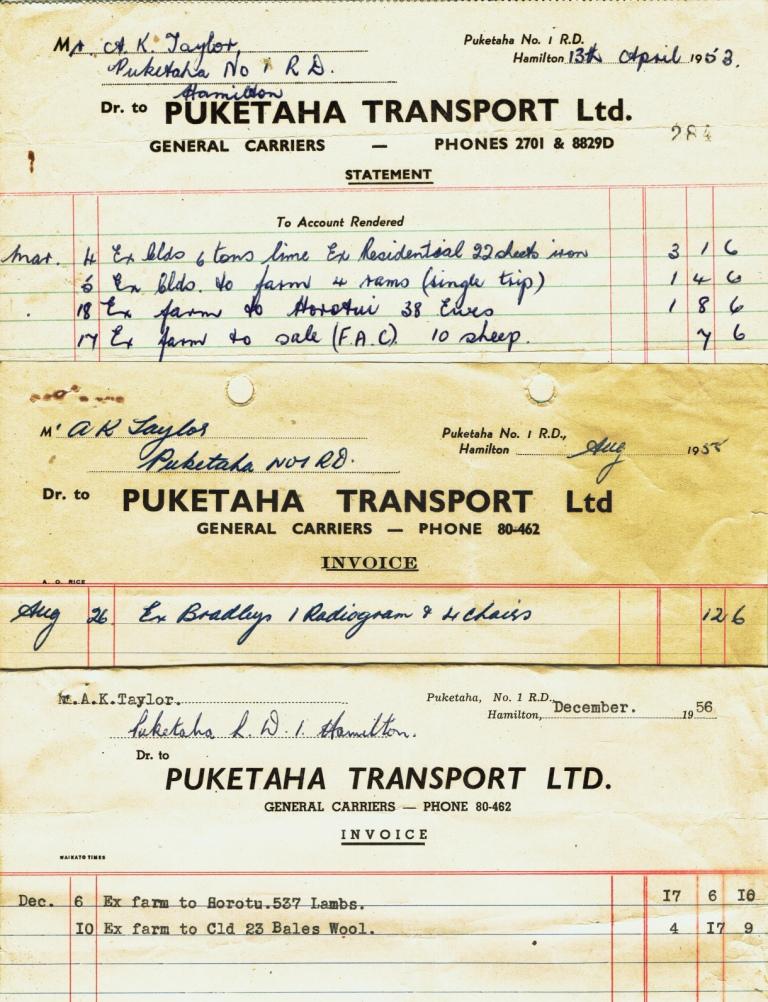 Mr. A. K. Taylor,
Puketaha No 1 R D.
Hamilton
Puketaha No. 1 R.D.
Hamilton 13th April 1953.
Dr. to PUKETAHA TRANSPORT Ltd.
GENERAL CARRIERS — PHONES 2701 & 8829D
284
STATEMENT
To Account Rendered
Mar. 4 Ex Clds 6 tons lime Ex Residential 22 sheets iron 3 1 6
5 Ex Clds. to farm 4 rams (single trip) 1 4 6
. 18 Ex farm to Horotui 38 Ewes 1 8 6
17 Ex farm to sale (F.A.C). 10 sheep. 7 6
Mr A K Taylor
Puketaha No1 RD.
Puketaha No. 1 R.D.,
Hamilton Aug 1955
Dr. to PUKETAHA TRANSPORT Ltd
GENERAL CARRIERS — PHONE 80-462
INVOICE
A. O. RICE
Aug 26. Ex Bradleys 1 Radiogram & 4 chairs 12 6
M.A.K.Taylor.
Puketaha R. D. 1. Hamilton.
Puketaha, No. 1 R.D.,
Hamilton, December. 1956
Dr. to
PUKETAHA TRANSPORT LTD.
GENERAL CARRIERS — PHONE 80-462
INVOICE
WAIKATO TIMES
Dec. 6 Ex farm to Horotu.537 Lambs. 17 6 10
10 Ex farm to Cld 23 Bales Wool. 4 17 9